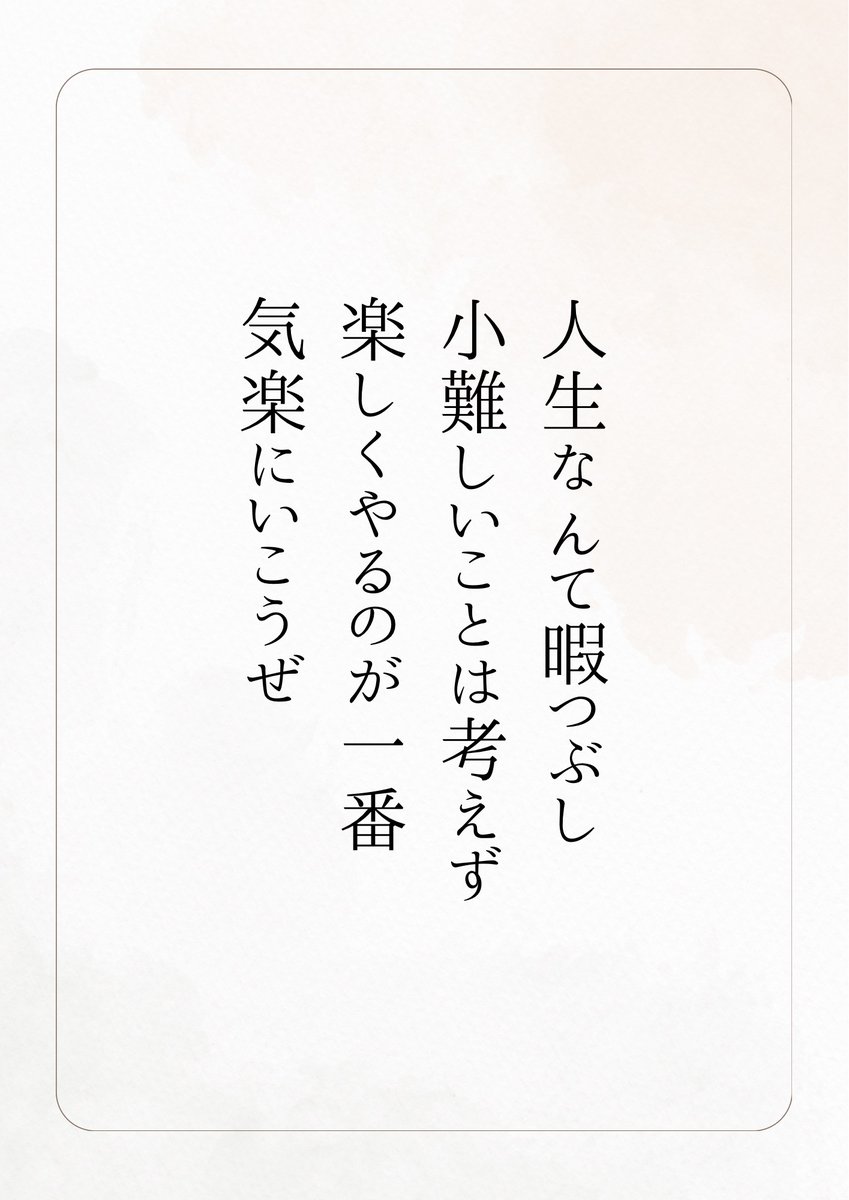 人生なんて暇つぶし
小難しいことは考えず
楽しくやるのが一番
気楽にいこうぜ